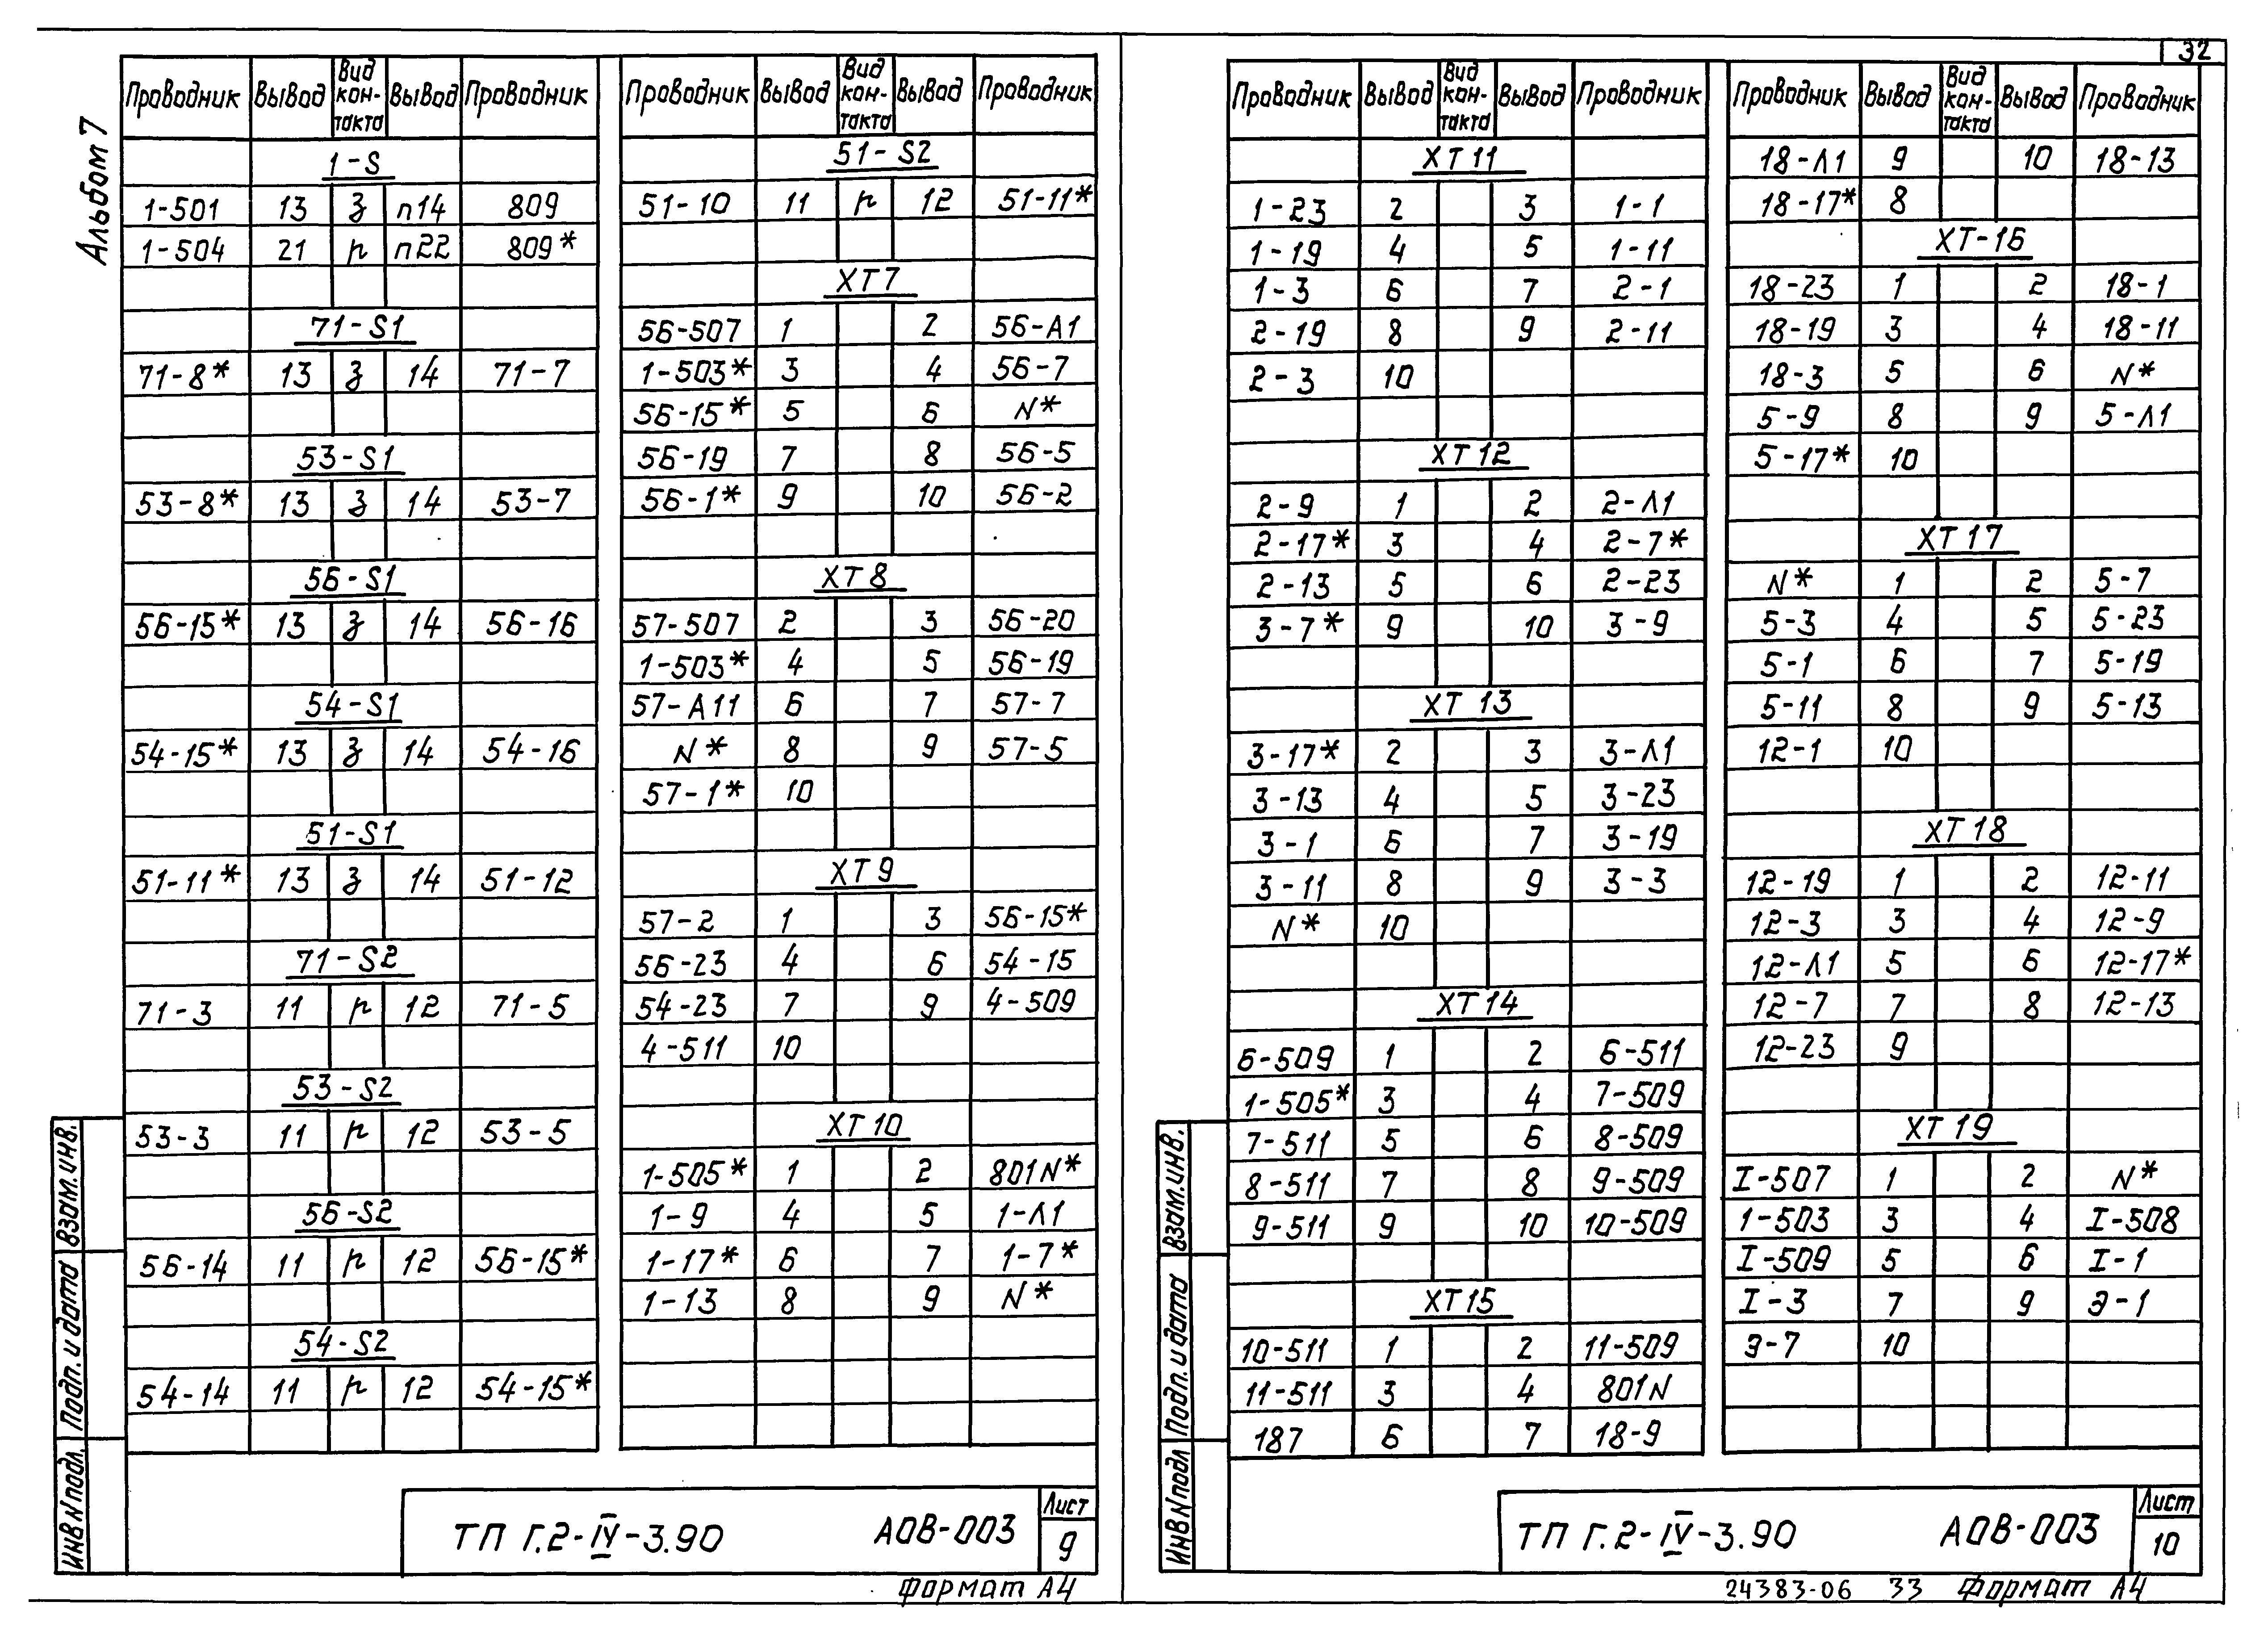 Альбом 7
Проводник Вывод Вид кон-такта Вывод Проводник
1-S
1-501 13 з п14 809
1-504 21 р п22 809*
71-S1
71-8* 13 з 14 71-7
53-S1
53-8* 13 з 14 53-7
56-S1
56-15* 13 з 14 56-16
54-S1
54-15* 13 з 14 54-16
51-S1
51-11* 13 з 14 51-12
71-S2
71-3 11 р 12 71-5
53-S2
53-3 11 р 12 53-5
56-S2
56-14 11 р 12 56-15*
54-S2
54-14 11 р 12 54-15*
Проводник Вывод Вид кон-такта Вывод Проводник
51-S2
51-10 11 р 12 51-11*
ХТ7
56-507 1 2 56-А1
1-503* 3 4 56-7
56-15* 5 6 N*
56-19 7 8 56-5
56-1* 9 10 56-2
ХТ8
57-507 2 3 56-20
1-503* 4 5 56-19
57-А11 6 7 57-7
N* 8 9 57-5
57-1* 10
ХТ9
57-2 1 3 56-15*
56-23 4 6 54-15
54-23 7 9 4-509
4-511 10
ХТ10
1-505* 1 2 801N*
1-9 4 5 1-Л1
1-17* 6 7 1-7*
1-13 8 9 N*
Взам. инв.
Подп. и дата
Инв N подл.
ТП Г.2-IV-3.90 АОВ-003
Лист
9
Формат А4
32
Проводник Вывод Вид кон-такта Вывод Проводник
ХТ11
1-23 2 3 1-1
1-19 4 5 1-11
1-3 6 7 2-1
2-19 8 9 2-11
2-3 10
ХТ12
2-9 1 2 2-Л1
2-17* 3 4 2-7*
2-13 5 6 2-23
3-7* 9 10 3-9
ХТ13
3-17* 2 3 3-Л1
3-13 4 5 3-23
3-1 6 7 3-19
3-11 8 9 3-3
N* 10
ХТ14
6-509 1 2 6-511
1-505* 3 4 7-509
7-511 5 6 8-509
8-511 7 8 9-509
9-511 9 10 10-509
ХТ15
10-511 1 2 11-509
11-511 3 4 801N
187 6 7 18-9
Проводник Вывод Вид кон-такта Вывод Проводник
18-Л1 9 10 18-13
18-17* 8
ХТ-16
18-23 1 2 18-1
18-19 3 4 18-11
18-3 5 6 N*
5-9 8 9 5-Л1
5-17* 10
ХТ17
N* 1 2 5-7
5-3 4 5 5-23
5-1 6 7 5-19
5-11 8 9 5-13
12-1 10
ХТ18
12-19 1 2 12-11
12-3 3 4 12-9
12-Л1 5 6 12-17*
12-7 7 8 12-13
12-23 9
ХТ19
I-507 1 2 N*
1-503 3 4 I-508
I-509 5 6 I-1
I-3 7 9 Э-1
Э-7 10
Взам. инв.
Подп. и дата
Инв N подл
ТП Г.2-IV-3.90 АОВ-003
Лист
10
24383-06 33 Формат А4